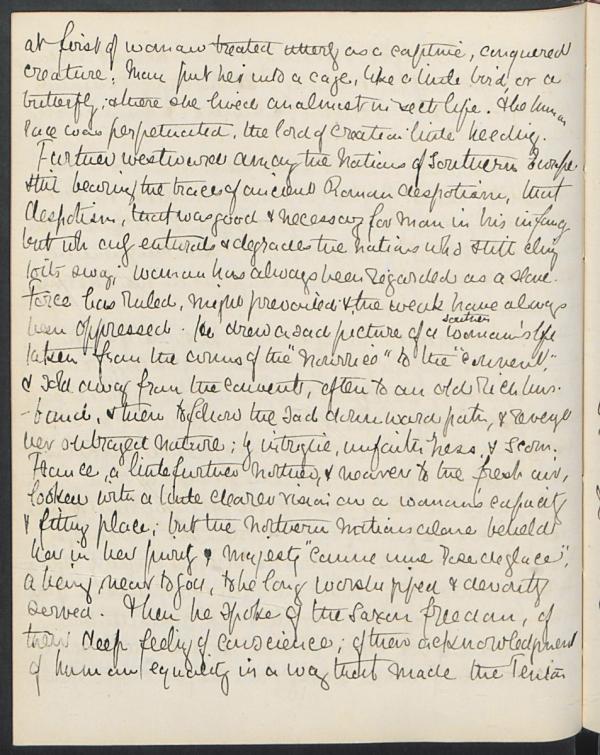 at first of woman treated utterly as a captive, conquered
creature; Man put her into a cage, like a little bird, or a
butterfly, where she lived an almost insect life. The human
race was perpetuated, the lord of creation little heeding.
Further westward among the Nations of Southern Europe
still bearing the traces of ancient Roman despotism, that
despotism, that was good & necessary for Man in his infancy
but wh only enthrals & degrades the nations who still cling
to its sway; woman has always been regarded as a slave.
Force has ruled, might prevailed & the weak have always
been oppressed. He drew a sad picture of a southern woman's life
taken from the arms of the "Nourrice" to the "convent",
& sold away from the convents, often to an old rich hus-
-band, & then to follow the sad downward path, & revenge
her outraged nature; by intrigue, unfaithfulness, & scorn.
France, a little further North, & nearer to the fresh air,
looked with a little clearer vision on a woman's capacity
& fitting place; but the Northern Nations alone beheld
her in her purity & majesty "comme une rose de glace";
a being near to God, to be long worshipped & devoutly
served. Then he spoke of the Saxon freedom, of
their deep feeling of conscience; of their acknowledgment
of human equality in a way that made the